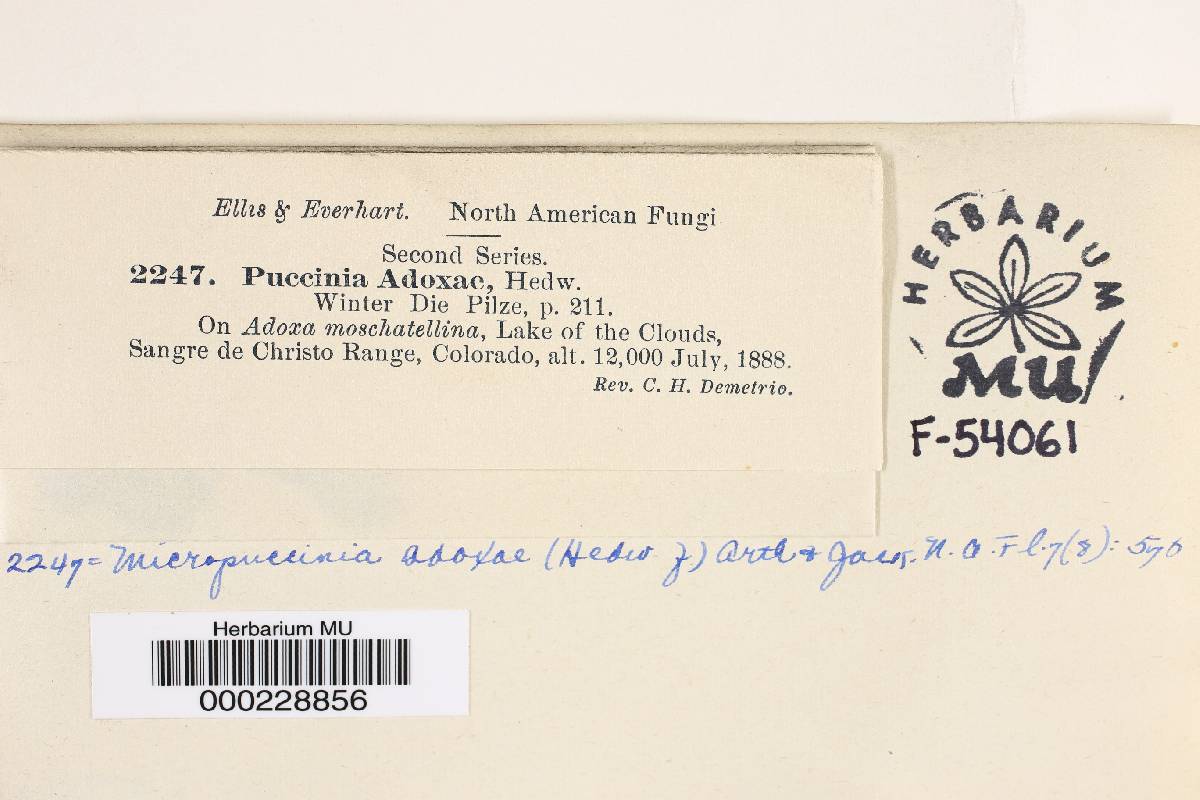 Ellis & Everhart. North American Fungi
Second Series.
2247. Puccinia Adoxae, Hedw.
Winter Die Pilze, p. 211.
On Adoxa moschatellina, Lake of the Clouds,
Sangre de Christo Range, Colorado, alt. 12,000 July, 1888.
Rev. C. H. Demetrio.
HERBARIUM
MU
F-54061
2247= Micropuccinia adoxae (Hedw f) Arth & Jack. N. A. Fl. 7(8): 570
Herbarium MU
000228856